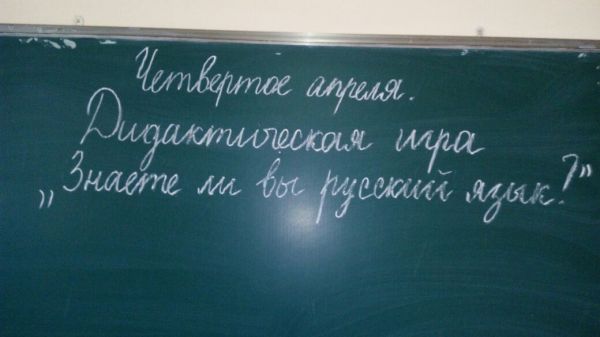 Четвертое апреля.
Дидактическая игра
„Знаете ли вы русский язык?”